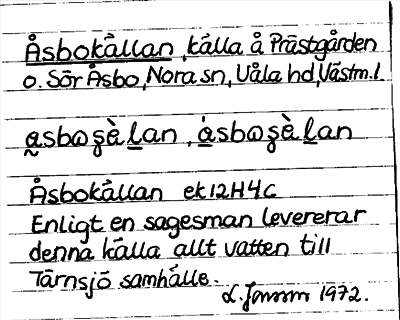 Åsbokällan, källa å Prästgården
o. Sör Åsbo, Nora sn, Våla hd, Västm.l.
a̰sbωʂὲl̲an, ȧ̲sbωʂὲl̲an
Åsbokällan ek 12H4c
Enligt en sagesman levererar
denna källa allt vatten till
Tärnsjö samhälle.
L. Jonsson 1972.